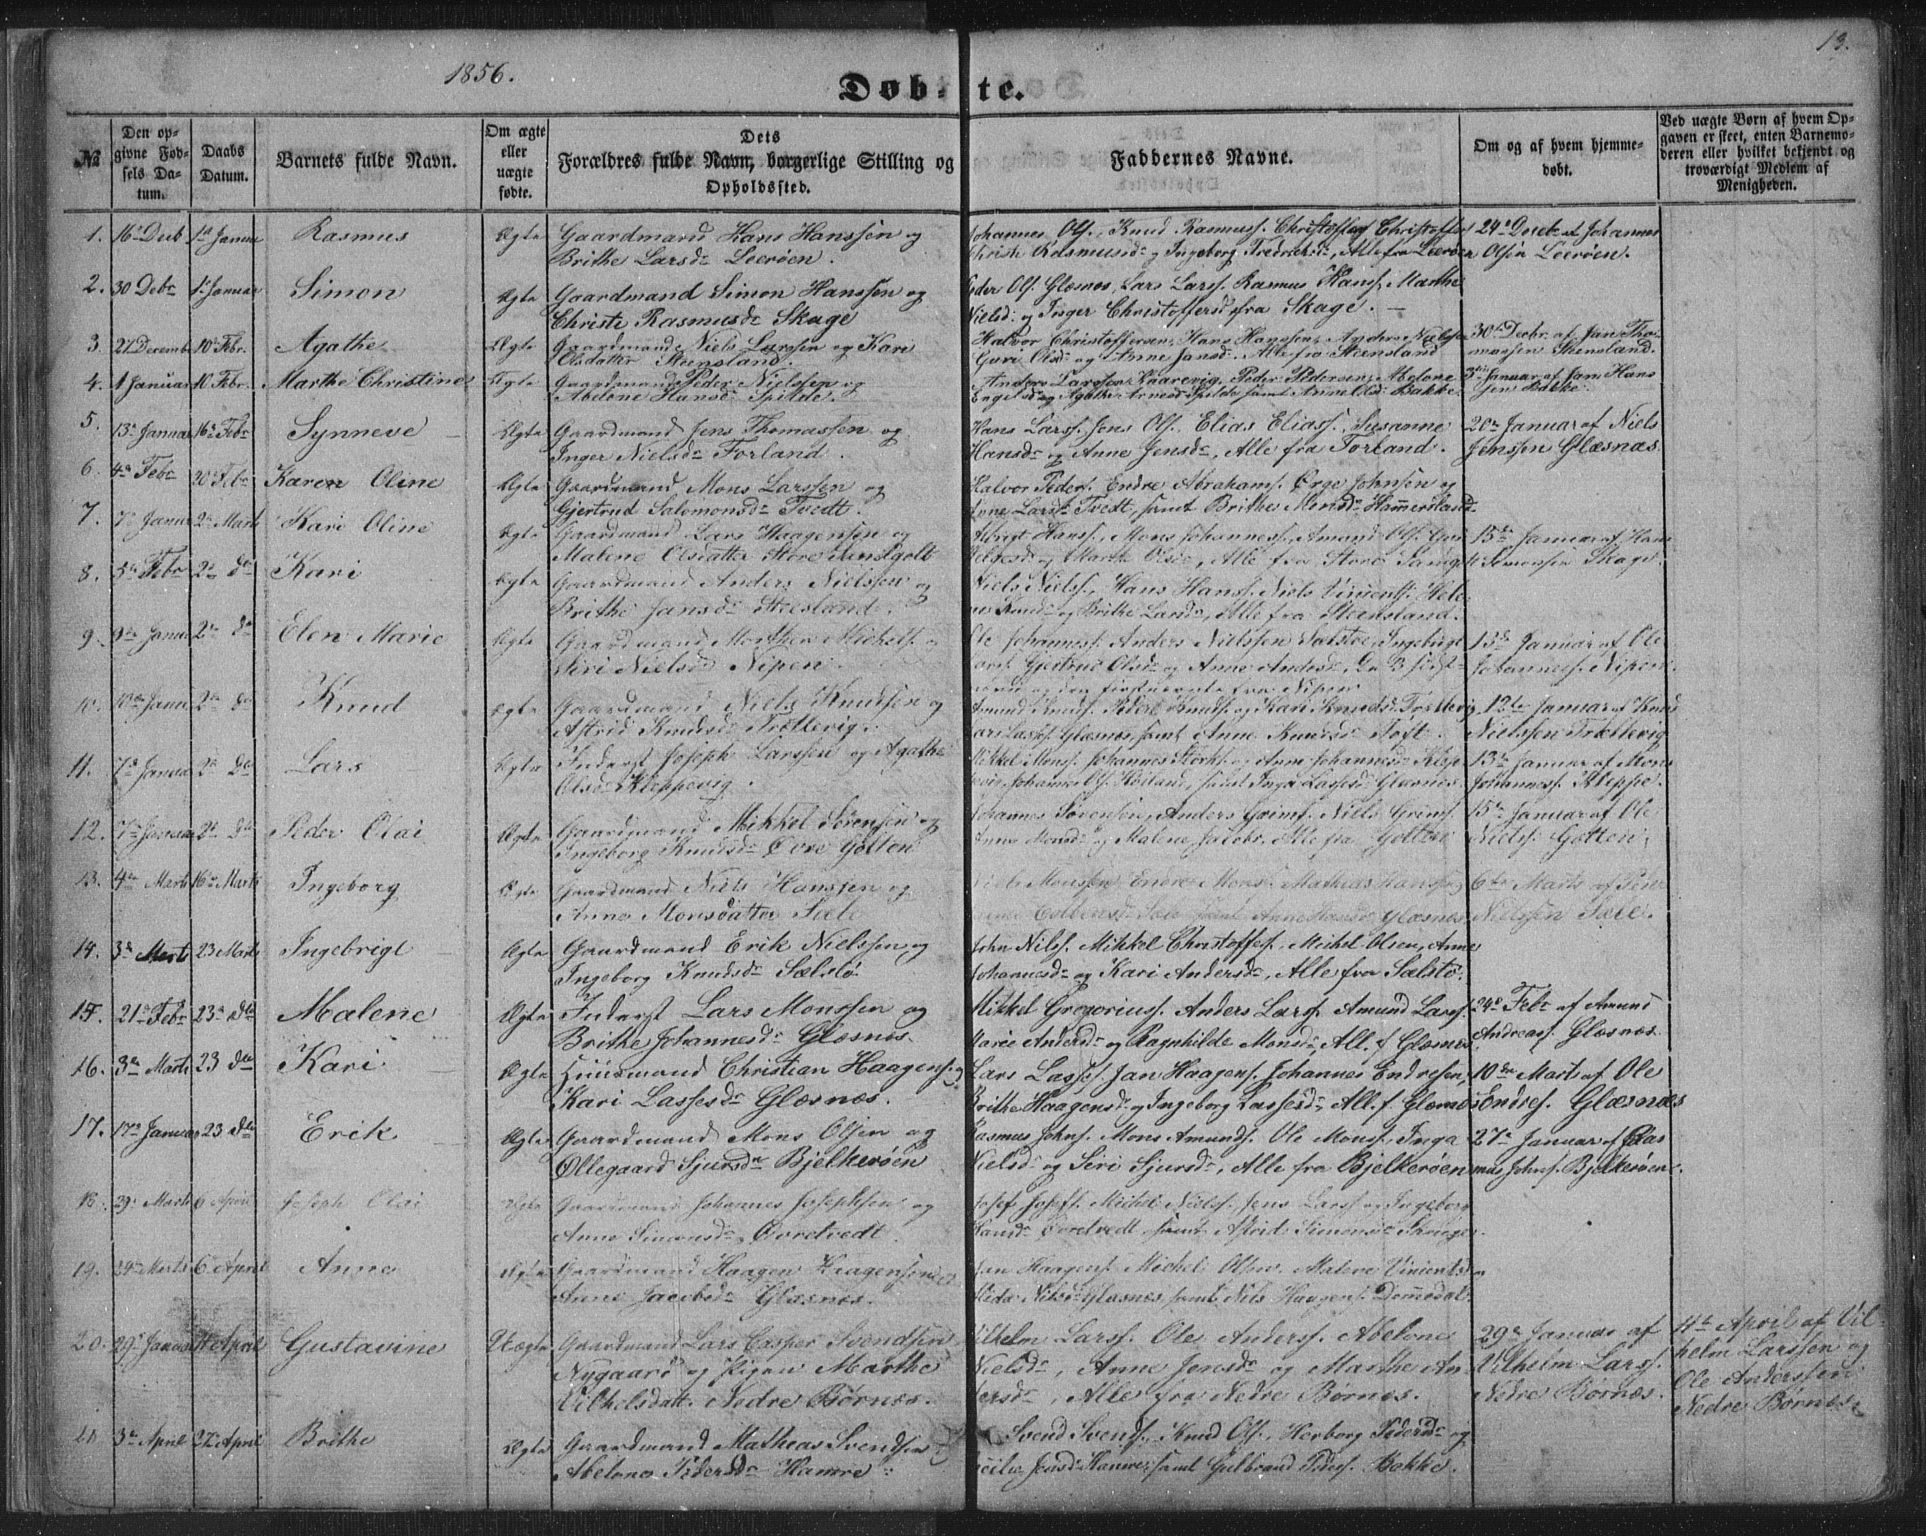 1856.
13.
Døb-te.
№
Den op-
givne Fød-
sels Da-
tum.
Daabs
Datum.
Barnets fulde Navn.
Om ægte
eller
uægte
fødte.
Dets
Forældres fulde Navn, borgerlige Stilling og
Opholdssted.
Faddernes Navne.
Om og af hvem hjemme-
døbt.
Ved uægte Børn af hvem Op-
gaven er skeet, enten Barnemo-
deren eller hvilket bekjendt og
troværdigt Medlem af
Menigheden.
1. 16de Decb 1ste Januar Rasmus Ægte Gaardmand Hans Hanssen og
Brithe Larsdr Leerøen.
Johannes Ols., Knud Rasmuss. Christoffer Christoffers
Rasmusdr og Ingeborg Fredriksdr, Alle fra Leerøen
24de Decbr af Johannes
Olsen Leerøen.
2. 30 Debr 1ste Januar Simon Ægte Gaardmand Simon Hanssen og
Christi Rasmusdr Skage
Peder Ols. Glæsnes, Lars Larss. Rasmus Hanss. Marthe
Nielsd: og Inger Christoffersd fra Skage.
3. 21 Decemb 10de Febr. Agathe Ægte Gaardmand Niels Larssen og Kari
Olsdatter Steensland.
Halvor Christoffersen, Hans Hanssen, Anders Nielssen
Guri Olsd: og Anne Jansd. Alle fra Steensland
30te Decbr. af Jan Tho-
massen Steensland.
4. 1 Januar 10 Febr. Marthe Christine Ægte Gaardmand Peder Nielssen og
Abelone Hansd: Spilde.
Anders Larssen Kaarevig, Peder Pedersen, Abelone
Engelsd og Agathe Arnesd Spilde samt Anne Olsd: Bakke
3die Januar af Jan Hans
sen Bakke.
5. 13de Januar 16de Febr Synneve Ægte Gaardmand Jens Thomassen og
Inger Nielsdr Forland.
Hans Larss. Jens Ols. Elias Eliass. Susanne
Hansdr og Anne Jensdr, Alle fra Forland.
20de Januar af Niels
Jenssen Glæsnæs
6. 4de Febr 20de Febr Karen Oline Ægte Gaardmand Mons Larssen og
Gjertrud Salomonsdr Tvedt.
Halvor Peders. Endre Abrahams. Ørge Johnsen og
Anne Larsdr Tvedt, samt Brithe Monsdr Hammersland
7. 7de Januar 2den Marts Kari Oline Ægte Gaardmand Lars Haagensen og
Malene Olsdatter Store
Hans., Mons Johanness., Amund Ols.
og Marthe Olsdr, Alle fra Store
15de Januar af Hans
Simonsen Skage.
8. 5te Febr 2den do Kari Ægte Gaardmand Anders Nielssen og
Brithe Jansdr Steensland.
Niels Niels., Hans Hans. Niels Vincents.
og Brithe Larsdr, Alle fra Steensland.
9. 9de Januar 2den do Elen Marie Ægte Gaardmand Morthen Michels. og
Siri Nielsdr Nipen.
Ole Johanness. Anders Nielssen Sælstøe, Ingebrigt
Gjertrud Olsdr og Anne Andersdr,
fra Nipen
13de Januar af Ole
Johanness. Nipen.
10. 10de Januar 2den do Knud Ægte Gaardmand Niels Knudssen og
Astrid Knudsdr Trættevig.
Amund Knuds. Peder Knuds. og Kari Knudsdr Trættevig
Larss. Glæsnæs, samt Anne Knudsdr Toft.
12te Januar af Knud
Nielssen Trættevig
11. 7de Januar 2den do Lars Ægte Inderst Joseph Larssen og Agathe
Olsdr Kleppevig.
Mikkel Monss. Johannes Størks. og Anne Johannesdr Klep
pevig, Johannes Ols. Høiland, samt Inga Lassesdr Glæsnæs
13de Januar af Mons
Johanness. Kleppe.
12. 7de Januar 2den do Peder Olai Ægte Gaardmand Mikkel Sørensen og
Ingeborg Knudsdr Øvre Golten
Johannes Sørensen, Anders Grims. Niels Grims.
Anna Monsdr og Malene Jacobs. Alle fra Golten
15de Januar af Ole
Niels. Gotten.
13. 4de Marts 16de Marts Ingeborg Ægte Gaardmand Niels Hanssen og
Anna Monsdatter Sæle
Niels Monssen Endre Mons. Mathias Hanssen
Sæle samt Anne Hansdr Glæsnæs
6te Marts af
Nielssen Sæle.
14. 3de Marts 23 Marts Ingebrigt Ægte Gaardmand Erik Nielssen og
Ingeborg Knudsdr Sælstø.
John Nils. Mikkel Christoffes. Michel Olsen, Anne
Johannesdr og Kari Andersdr, Alle fra Sælstø.
15. 21de Febr 23de do Malene Ægte Inderst Lars Monssen og
Brithe Johannesdr Glæsnæs.
Mikkel Gregoriuss. Anders Larss. Amund Larss.
Marie Andersdr og Ragnhilde Monsdr, All. f. Glæsnæs
24de Febr af Amund
Andreass. Glæsnæs.
16. 3de Marts 23 do Kari Ægte Huusmand Christian Haagens. og
Kari Lassesdr Glæsnæs.
Lars Lasses. Jan Haagens. Johannes Endresen,
Brithe Haagensdr og Ingeborg Lassesdr, All. f. Glæsnæs
10de Marts af Ole
Endres. Glæsnæs
17. 17de Januar 23 do Erik Ægte Gaardmand Mons Olsen og
Øllegaard Sjursdr Bjelkerøen
Rasmus Johns. Mons Amunds. Ole Mons. Inga
Nielsd: og Siri Sjursdr, Alle fra Bjelkerøen
27de Januar af Ras
mus Johns. Bjelkerøen.
18. 29de Marts 6 April Joseph Olai Ægte Gaardmand Johannes Josephsen og
Anne Simonsdr Øvretvedt.
Josef Josefs. Michel Niels. Jens Lars. og Ingeborg
Hansdr Øvretvedt samt Astrid Simonsdr Skauge
19. 24de Marts 6te April Anna Ægte Gaardmand Haagen Haagensen og
Anne Jacobsdr Glæsnæs.
Jan Haagens. Michel Olsen. Malene Vincentsdr
Nilsdr Glæsnæs samt Nils Haagens. Dommedal
20. 29de Januar April Gustavine Uægte Gaardmand Lars Casper Svendsen
Nygaard og Pigen Marthe
Vilhelsdatt. Nedre Børnæs.
Vilhelm Larss. Ole Anderss. Abelone
Nielsdr, Anne Jensdr og Marthe An
dersdr, Alle fra Nedre Børnes.
29de Januar af
Vilhelm Larss.
Nedre Børnæs.
April af Vil-
helm Larssen og
Ole Anderssen
Nedre Børnæs.
21. 3de April 27de April Brithe Ægte Gaardmand Mathias Svendsen og
Abelone Pedersdr Hamre
Svend Svends., Knud Ols., Herborg Pedersdr og
Jensdr Hamre, samt Gulbrand Peders. Bakke.